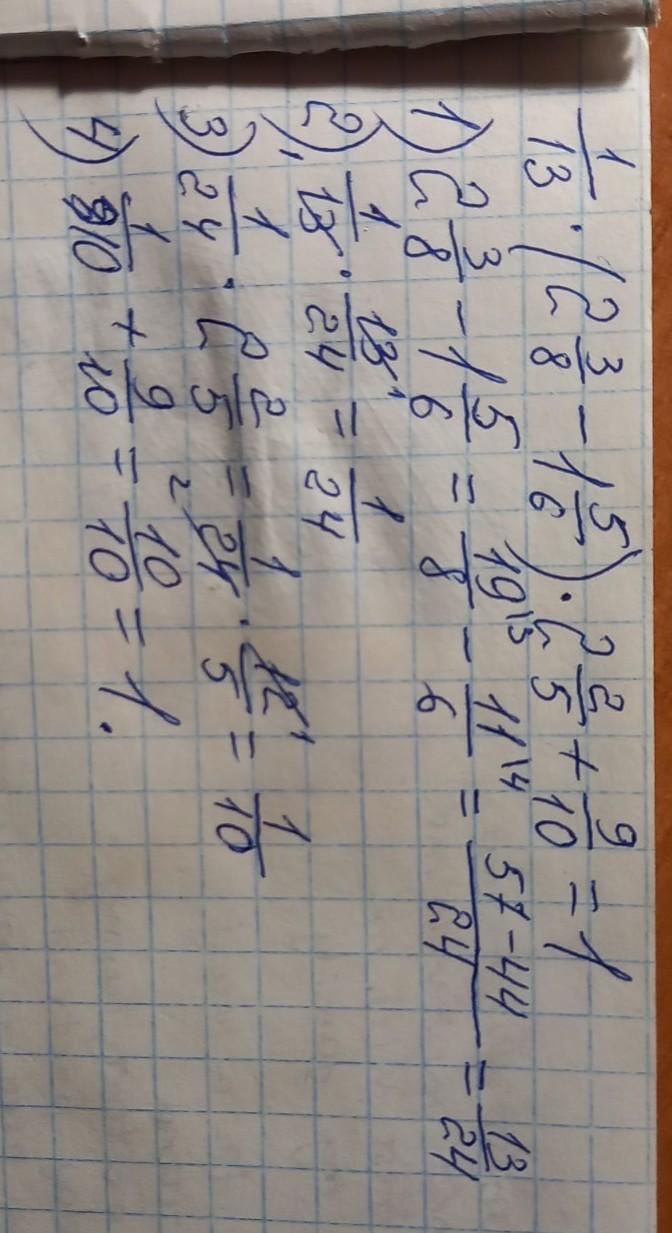 1/13 · (2 3/8 − 1 5/6) · 2 2/5 + 9/10 = 1
1) 2 3/8 − 1 5/6 = 19\3/8 − 11\4/6 = 57−44/24 = 13/24
2) 1/13 · 13 1/24 = 1/24
3) 1/24 · 2 2/5 = 1/24 2 · 12 1/5 = 1/10
4) 1/10 + 9/10 = 10/10 = 1.